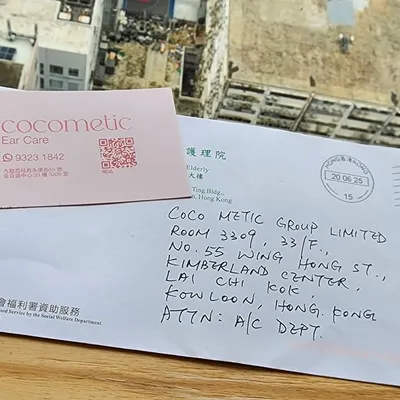 cocometic
Ear Care
9323 1842
網站
護理院
Elderly
大樓
Ting Bldg.,
Hong Kong
HONG KONG
20 06 25
15
COCO METIC GROUP LIMITED
ROOM 3309, 33/F.,
NO. 55 WING HONG ST.,
KIMBERLAND CENTER,
LAI CHI KOK,
KOWLOON, HONG KONG
ATTN: A/C DEPT.
會福利署資助服務
Service by the Social Welfare Department